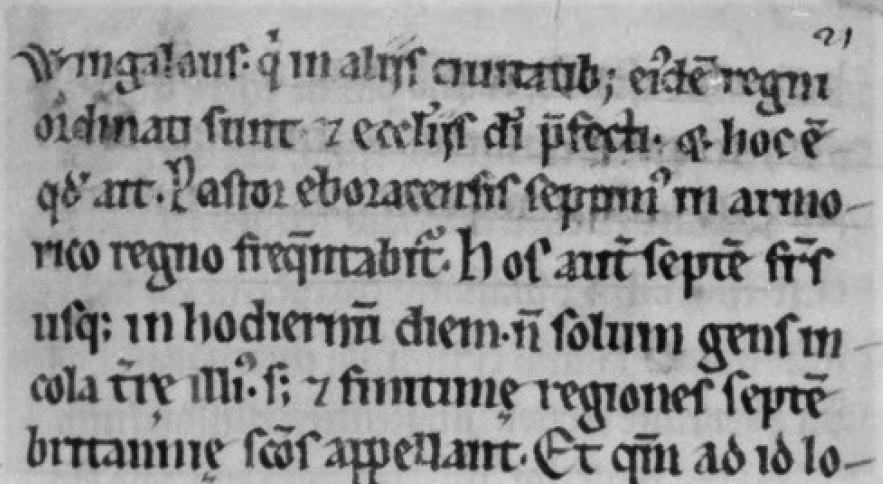 21
Wingalouſ. q̓ in alijſ ciuitatib; eiᷤdē regni
ordinati ſunt ⁊ eccl̓ijſ di p̄fecti. ꝙ hoc ē
qd̓ ait. Paſtor eboracenſiſ ſeptimꝰ in armo-
rico regno freq̄ntabit̃. Hoſ aut̄ ſeptē fr̄ſ
uſq; in hodiernū diem. n̄ ſolum genſ in-
cola t̄rę illiꝰ. ſ; ⁊ finitimę regioneſ ſeptē
brittannię ſc̄oſ appellant. Et qm̄ ad id lo-